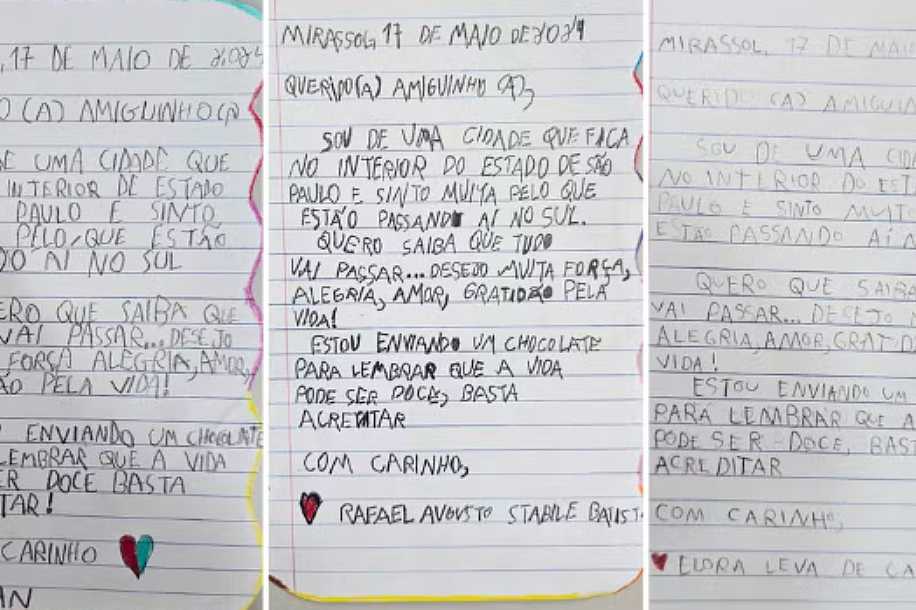 , 17 DE MAIO DE 2024
O (A) AMIGUINHO(A)
E UMA CIDADE QUE
INTERIOR DE ESTADO
PAULO E SINTO
PELO, QUE ESTÃO
DO AI NO SUL
ERO QUE SAIBA QUE
VAI PASSAR... DESEJO
FORÇA ALEGRIA, AMOR,
ÃO PELA VIDA!
ENVIANDO UM CHOCOLATE
LEMBRAR QUE A VIDA
ER DOCE BASTA
TAR!
CARINHO
AN
MIRASSOL, 17 DE MAIO DE 2024
QUERIDO(A) AMIGUINHO (A),
SOU DE UMA CIDADE QUE FICA
NO INTERIOR DO ESTADO DE SÃO
PAULO E SINTO MUITA PELO QUE
ESTÃO PASSANDO AÍ NO SUL.
QUERO SAIBA QUE TUDO
VAI PASSAR... DESEJO MUITA FORÇA,
ALEGRIA, AMOR, GRATIDÃO PELA
VIDA!
ESTOU ENVIANDO UM CHOCOLATE
PARA LEMBRAR QUE A VIDA
PODE SER DOCE, BASTA
ACREDITAR
COM CARINHO,
RAFAEL AUGUSTO STABILE BATIST
MIRASSOL, 17 DE MAI
QUERIDO (A) AMIGUIN
SOU DE UMA CID
NO INTERIOR DO EST
PAULO E SINTO MUITO
ESTÃO PASSANDO AÍ N
QUERO QUE SAIBA
VAI PASSAR... DECEJO
ALEGRIA, AMOR, GRATID
VIDA!
ESTOU ENVIANDO UM
PARA LEMBRAR QUE A
PODE SER DOCE, BAST
ACREDITAR
COM CARINHO,
LEVA DE CA